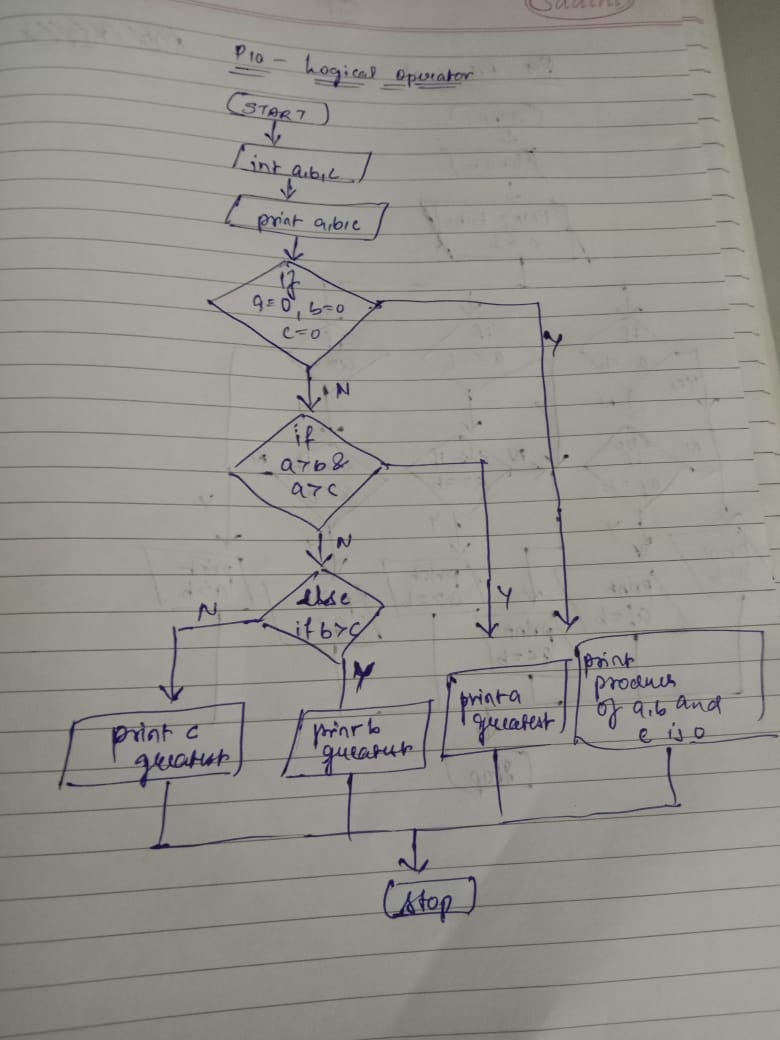 P10 - Logical Operator
START
int a,b,c
print a,b,c
if
a=0, b=0
c=0
Y
N
if
a>b &
a>c
N
Y
else
if b>c
N
Y
print c
greatest
print b
greatest
print a
greatest
print
product
of a,b and
c is 0
Stop